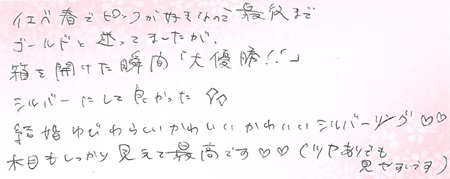 イエベ春でピンクが好きなので最後まで
ゴールドと迷ってましたが、
箱を開けた瞬間「大優勝!!」
シルバーにして良かった
結婚ゆびわらしいかわいいかわいいシルバーリング♡♡
木目もしっかり見えて最高です♡♡(ツヤありでも
見やすいです)